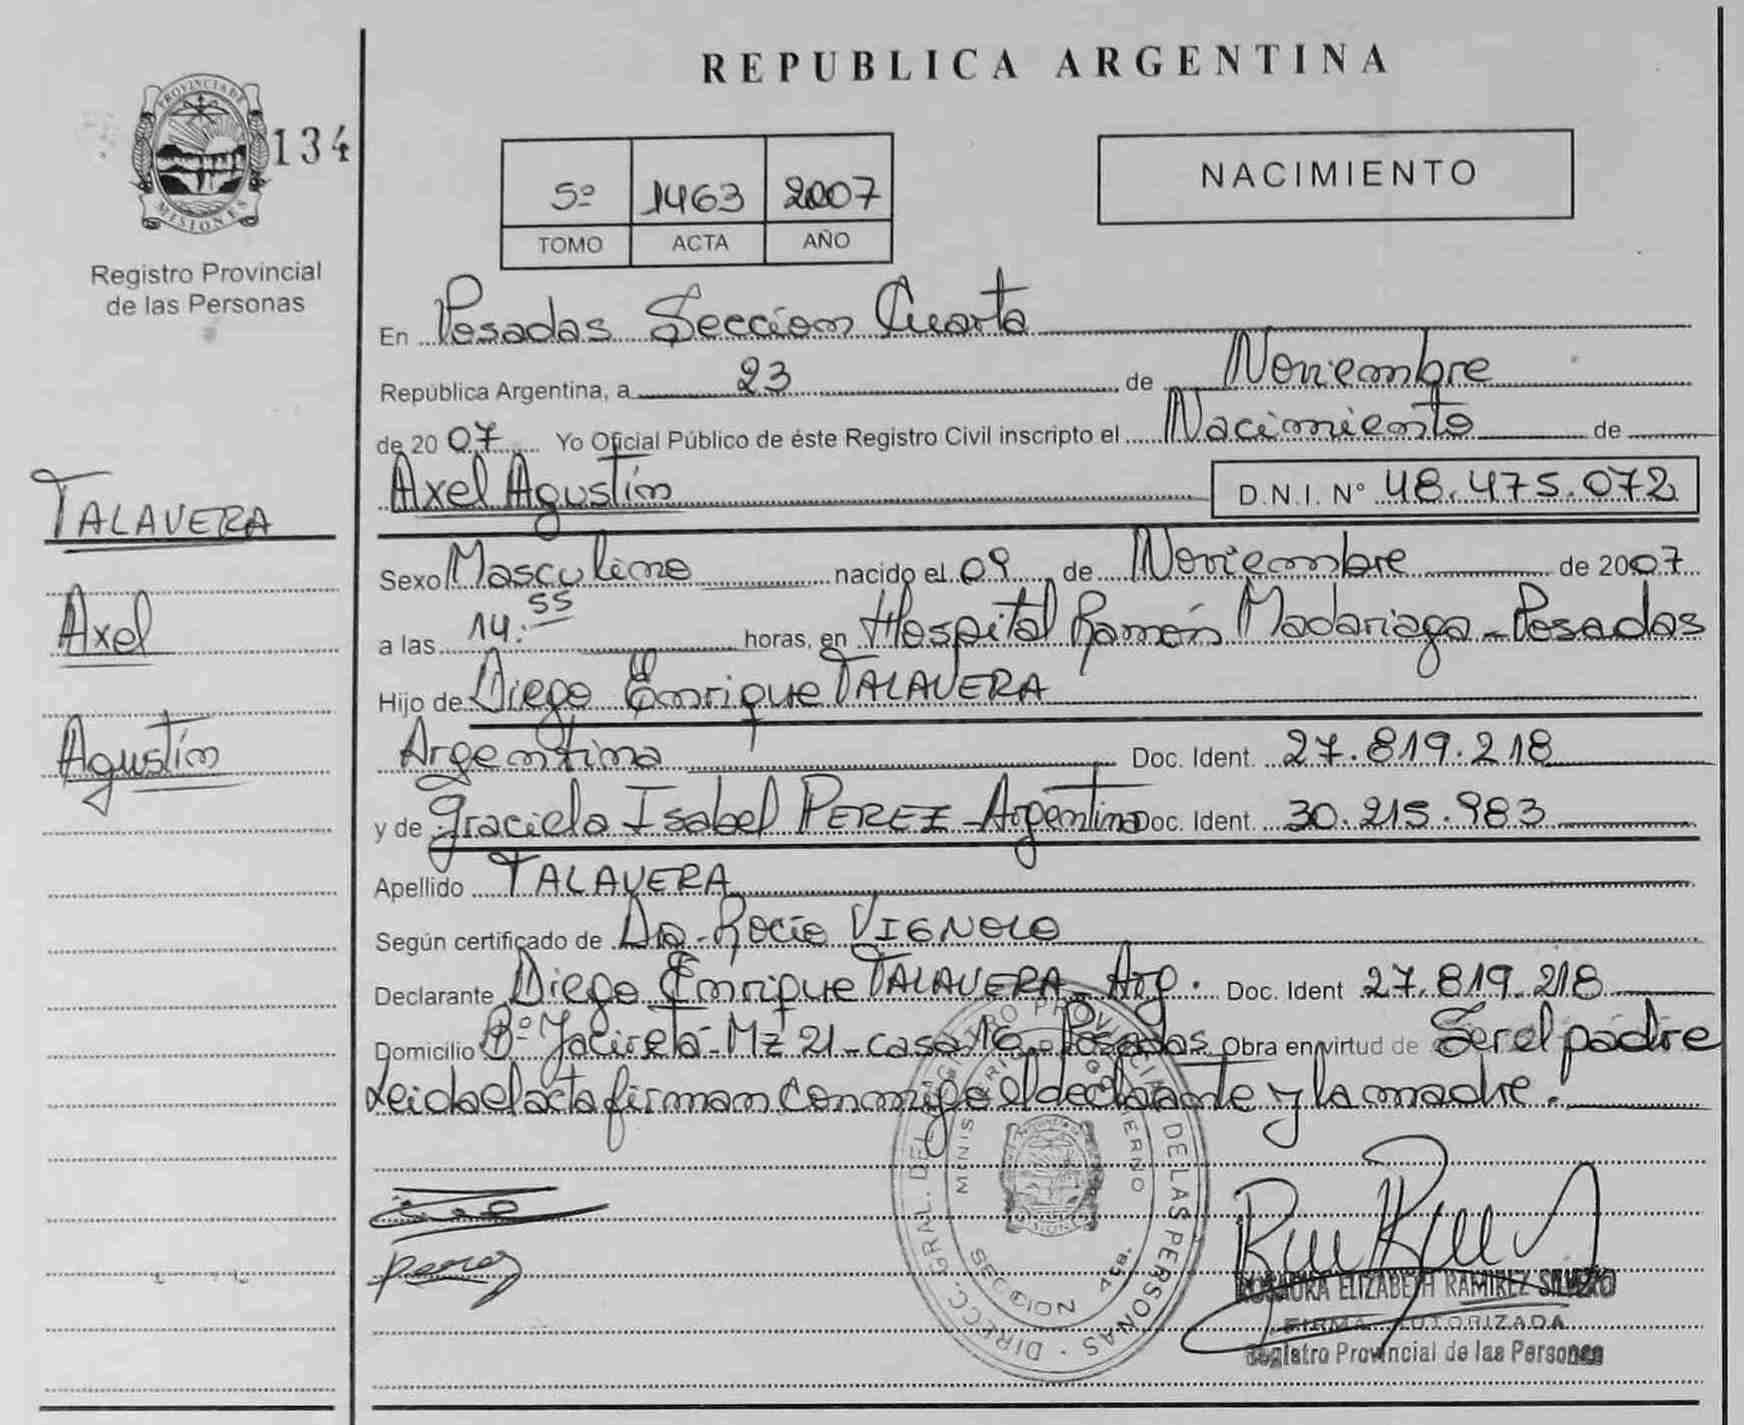 REPUBLICA ARGENTINA
PROVINCIA DE
MISIONES
134
Registro Provincial
de las Personas
5º 1463 2007
TOMO ACTA AÑO
NACIMIENTO
En Posadas Seccion Cuarta
República Argentina, a 23 de Noviembre
de 2007 Yo Oficial Público de éste Registro Civil inscripto el Nacimiento de
Axel Agustín D.N.I. N° 48.475.072
TALAVERA
Axel
Agustín
Sexo Masculino nacido el 09 de Noviembre de 2007
a las 14:55 horas, en Hospital Ramón Madariaga - Posadas
Hijo de Diego Enrique TALAVERA
Argentina Doc. Ident. 27.819.218
y de Graciela Isabel PEREZ - Argentina Doc. Ident. 30.215.983
Apellido TALAVERA
Según certificado de Dra. Rocío VIGNOLO
Declarante Diego Enrique TALAVERA - Arg. Doc. Ident 27.819.218
Domicilio Bº Yacireta - Mz 21 - casa 16 - Posadas Obra en virtud de Ser el padre
Leida el acta firman conmigo el declarante y la madre.
DIRECC. GRAL. DEL REGISTRO PROVINCIAL DE LAS PERSONAS
SECCION 4ta.
Perez
ROSAURA ELIZABETH RAMIREZ SILVERO
FIRMA AUTORIZADA
Registro Provincial de las Personas